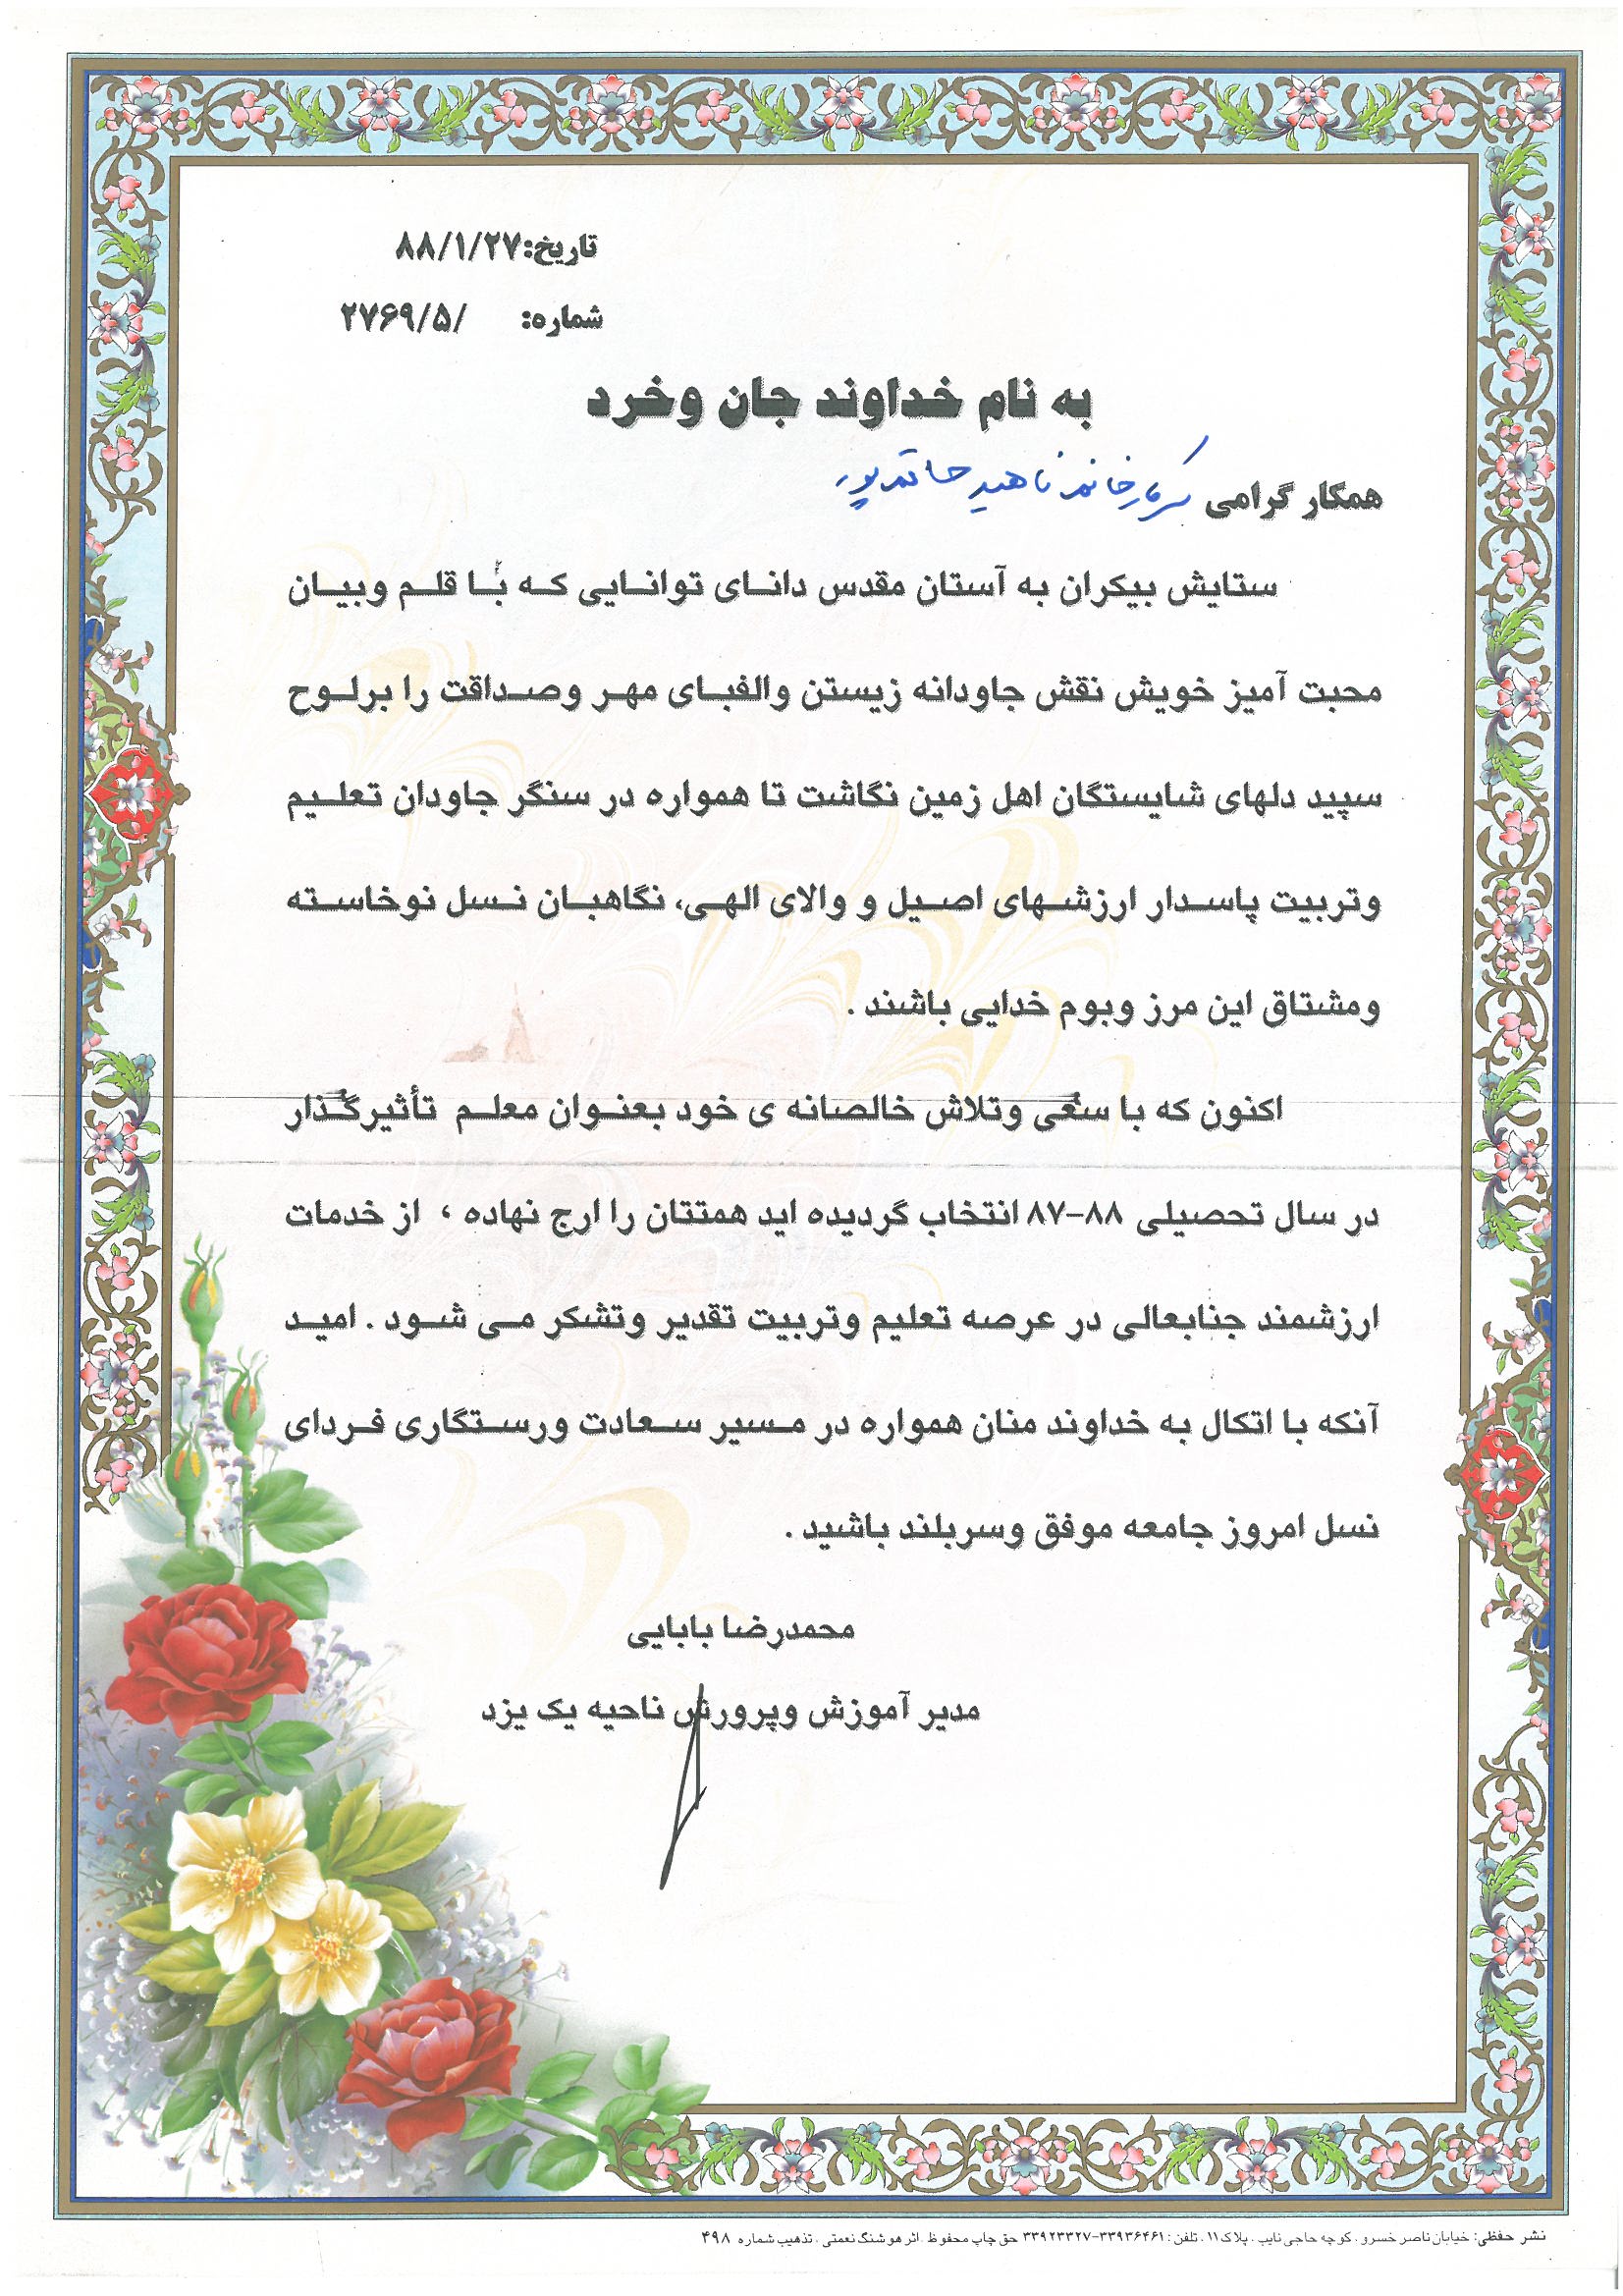 تاریخ:۸۸/۱/۲۷
شماره: /۲۷۶۹/۵
به نام خداوند جان وخرد
همکار گرامی سرکار خانم ناهید حاتم پور
ستایش بیکران به آستان مقدس دانای توانایی که با قلم وبیان
محبت آمیز خویش نقش جاودانه زیستن والفبای مهر وصداقت را برلوح
سپید دلهای شایستگان اهل زمین نگاشت تا همواره در سنگر جاودان تعلیم
وتربیت پاسدار ارزشهای اصیل و والای الهی، نگاهبان نسل نوخاسته
ومشتاق این مرز وبوم خدایی باشند .
اکنون که با سعی وتلاش خالصانه ی خود بعنوان معلم تأثیرگذار
در سال تحصیلی ۸۸-۸۷ انتخاب گردیده اید همتتان را ارج نهاده ، از خدمات
ارزشمند جنابعالی در عرصه تعلیم وتربیت تقدیر وتشکر می شود . امید
آنکه با اتکال به خداوند منان همواره در مسیر سعادت ورستگاری فردای
نسل امروز جامعه موفق وسربلند باشید .
محمدرضا بابایی
مدیر آموزش وپرورش ناحیه یک یزد
نشر حفظی: خیابان ناصر خسرو . کوچه حاجی نایب . پلاک ۱۱ . تلفن : ۳۳۹۳۶۴۶۱-۳۳۹۲۳۳۲۷ حق چاپ محفوظ . اثر هوشنگ نعمتی . تذهیب شماره ۴۹۸